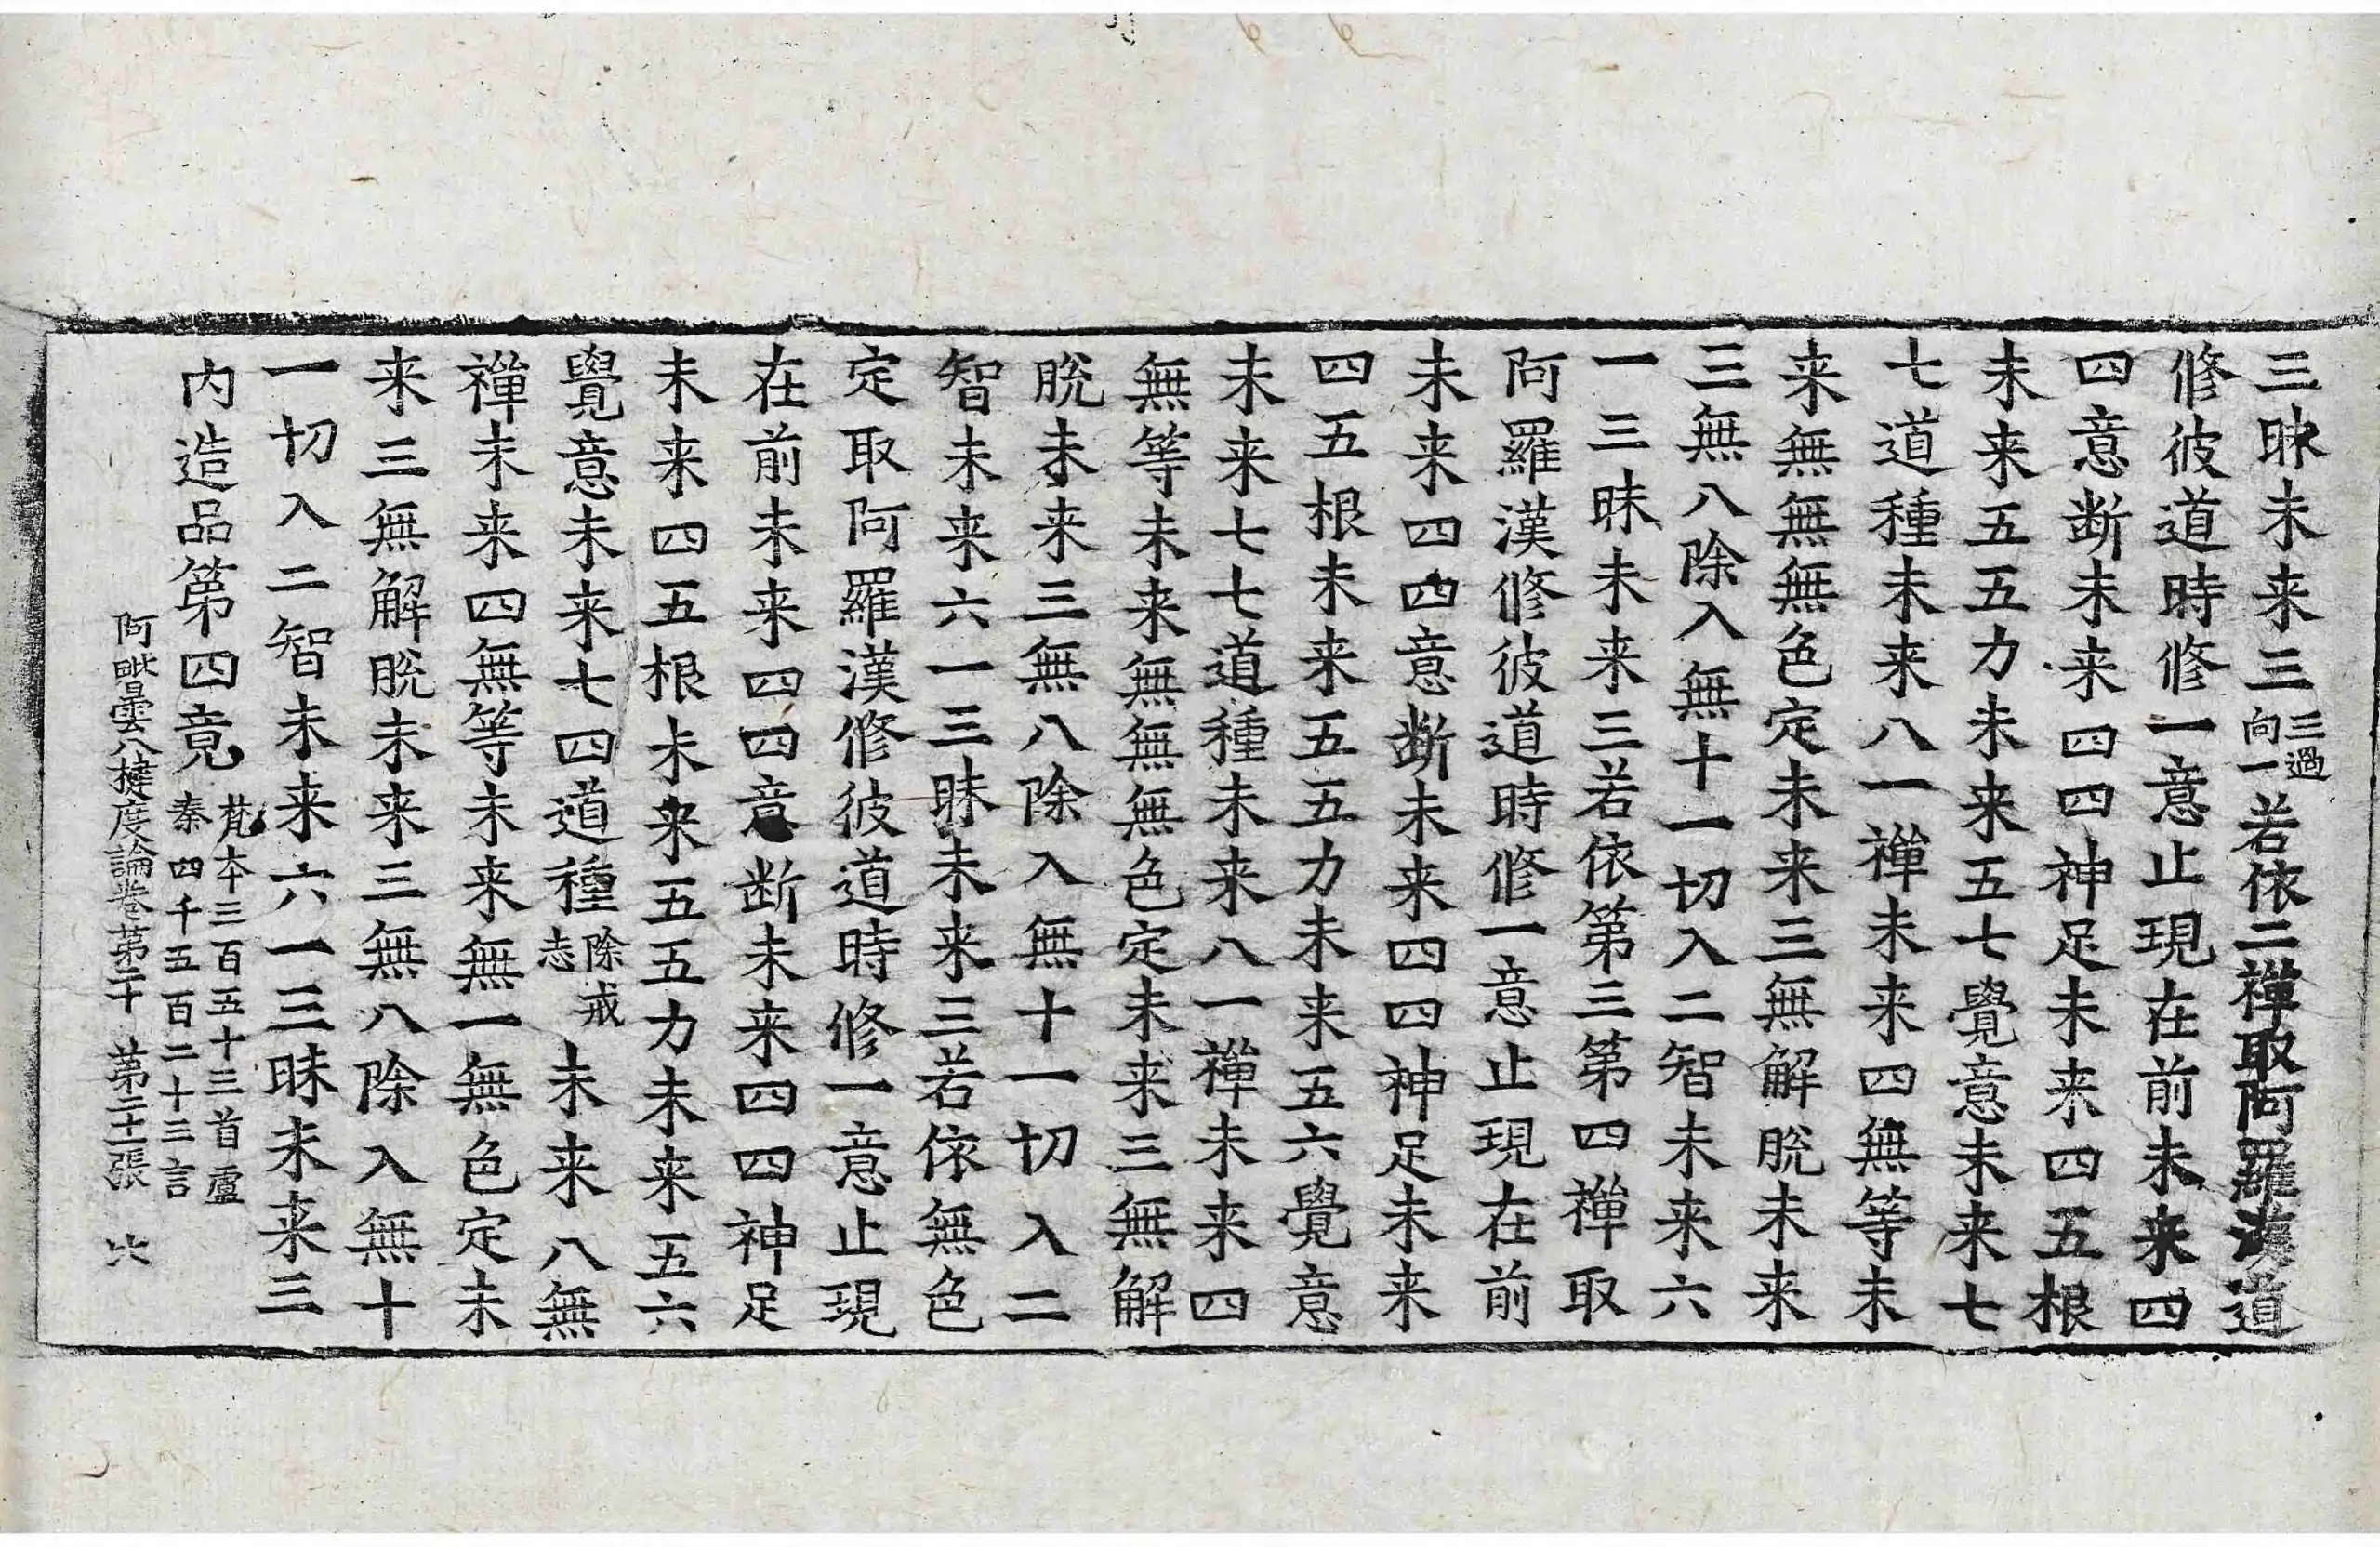 三昧未来三三過向一若依二禪取阿羅漢道
修彼道時修一意止現在前未来四
四意断未来四四神足未来四五根
未来五五力未来五七覺意未来七
七道種未来八一禪未来四無等未
来無無無色定未来三無解脫未来
三無八除入無十一切入二智未来六
一三昧未来三若依第三第四禪取
阿羅漢修彼道時修一意止現在前
未来四四意断未来四四神足未来
四五根未来五五力未来五六覺意
未来七七道種未来八一禪未来四
無等未来無無無色定未来三無解
脫未来三無八除入無十一切入二
智未来六一三昧未来三若依無色
定取阿羅漢修彼道時修一意止現
在前未来四四意断未来四四神足
未来四五根未来五五力未来五六
覺意未来七四道種除戒志未来八無
禪未来四無等未来無一無色定未
来三無解脫未来三無八除入無十
一切入二智未来六一三昧未来三
内造品第四竟梵本三百五十三首盧秦四千五百二十三言
阿毗曇八揵度論卷第二十 第二十二張 比